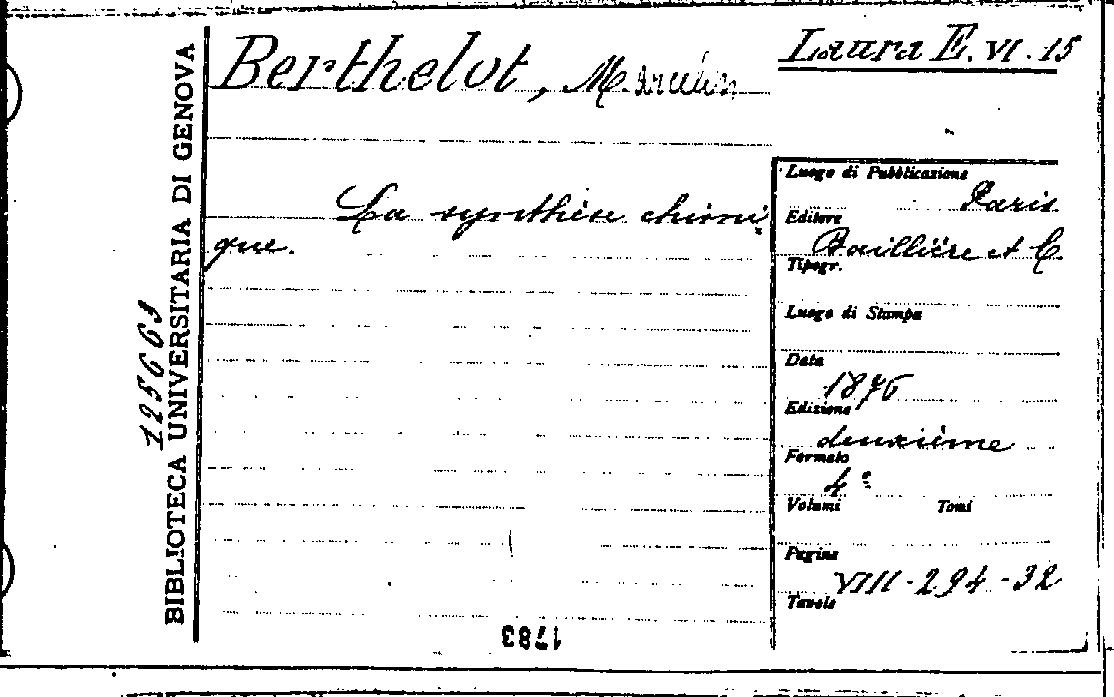 Berthelot, Marcelin
Laura E. VI. 15
La synthèse chimi
que.
Luogo di Pubblicazione
Paris
Editore
Baillière et C.
Tipogr.
Luogo di Stampa
Data
1876
Edizione
deuxième
Formato
4º
Volumi Tomi
Pagine
VIII-294-32
Tavole
BIBLIOTECA UNIVERSITARIA DI GENOVA
125663
1783